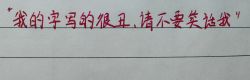 "我的字写的很丑，请不要笑话我"